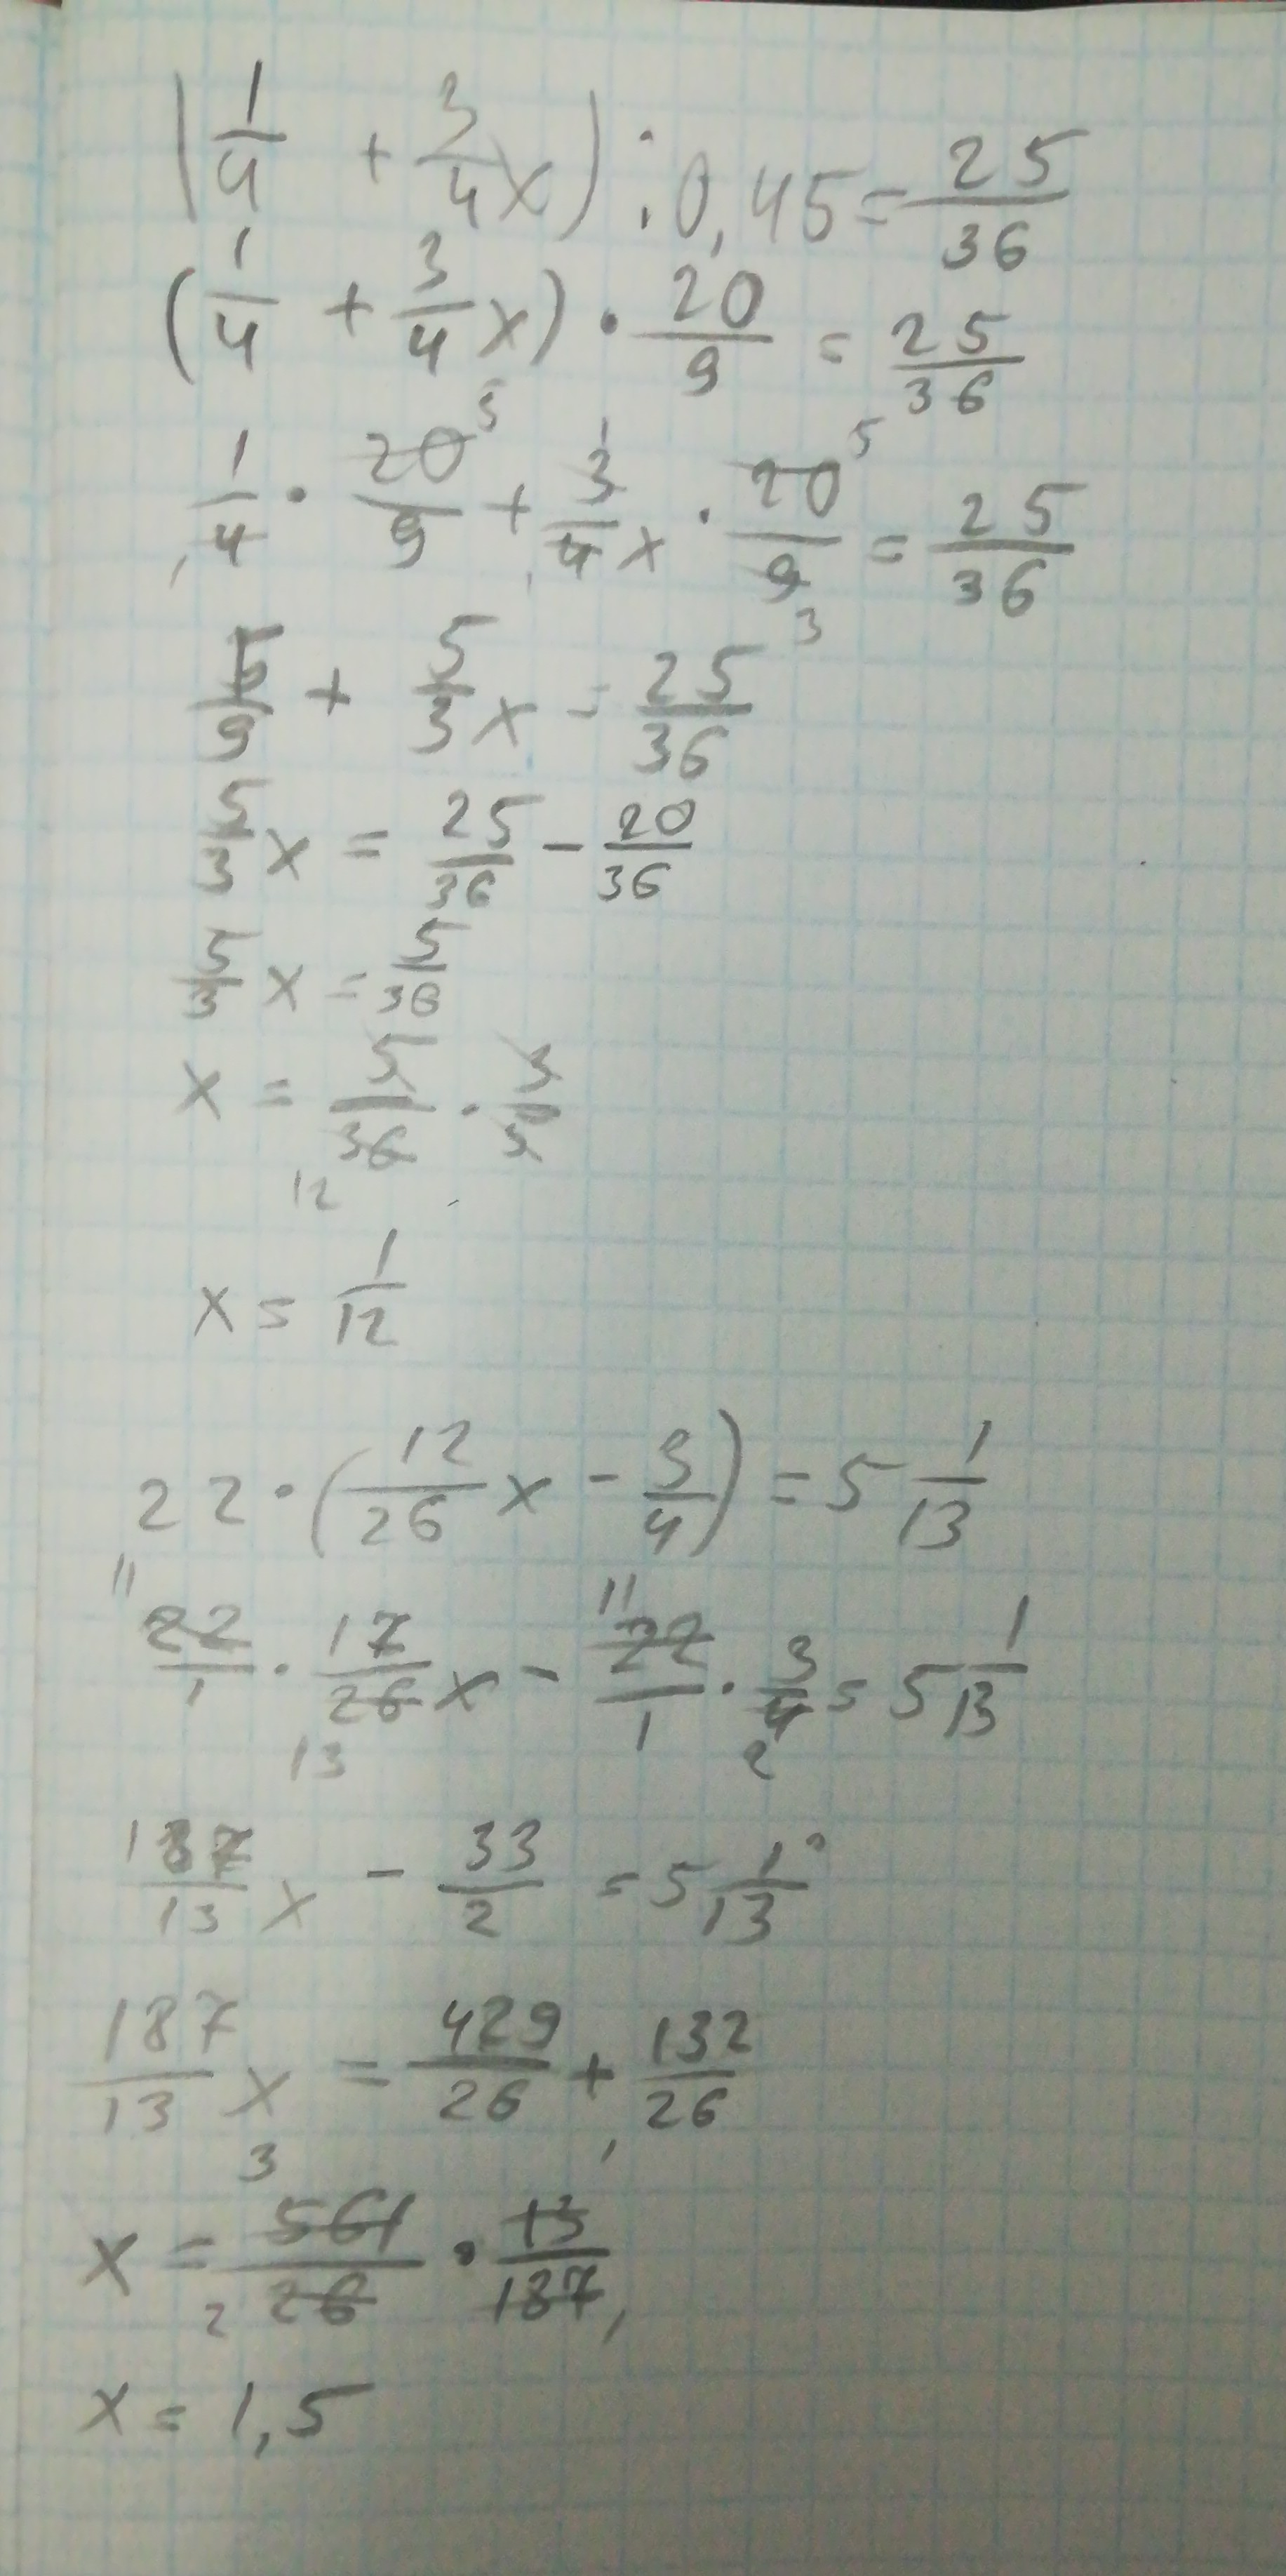 (1/4 + 3/4 x) : 0,45 = 25/36
(1/4 + 3/4 x) · 20/9 = 25/36
1/4 · 20/9 + 3/4 x · 20/9 = 25/36
5/9 + 5/3 x = 25/36
5/3 x = 25/36 - 20/36
5/3 x = 5/36
x = 5/36 · 3/5
12
x = 1/12
22 · (12/26 x - 3/4) = 5 1/13
22/1 · 17/26 x - 22/1 · 3/4 = 5 1/13
187/13 x - 33/2 = 5 1/13
187/13 x = 429/26 + 132/26
x = 561/26 · 13/187
x = 1,5